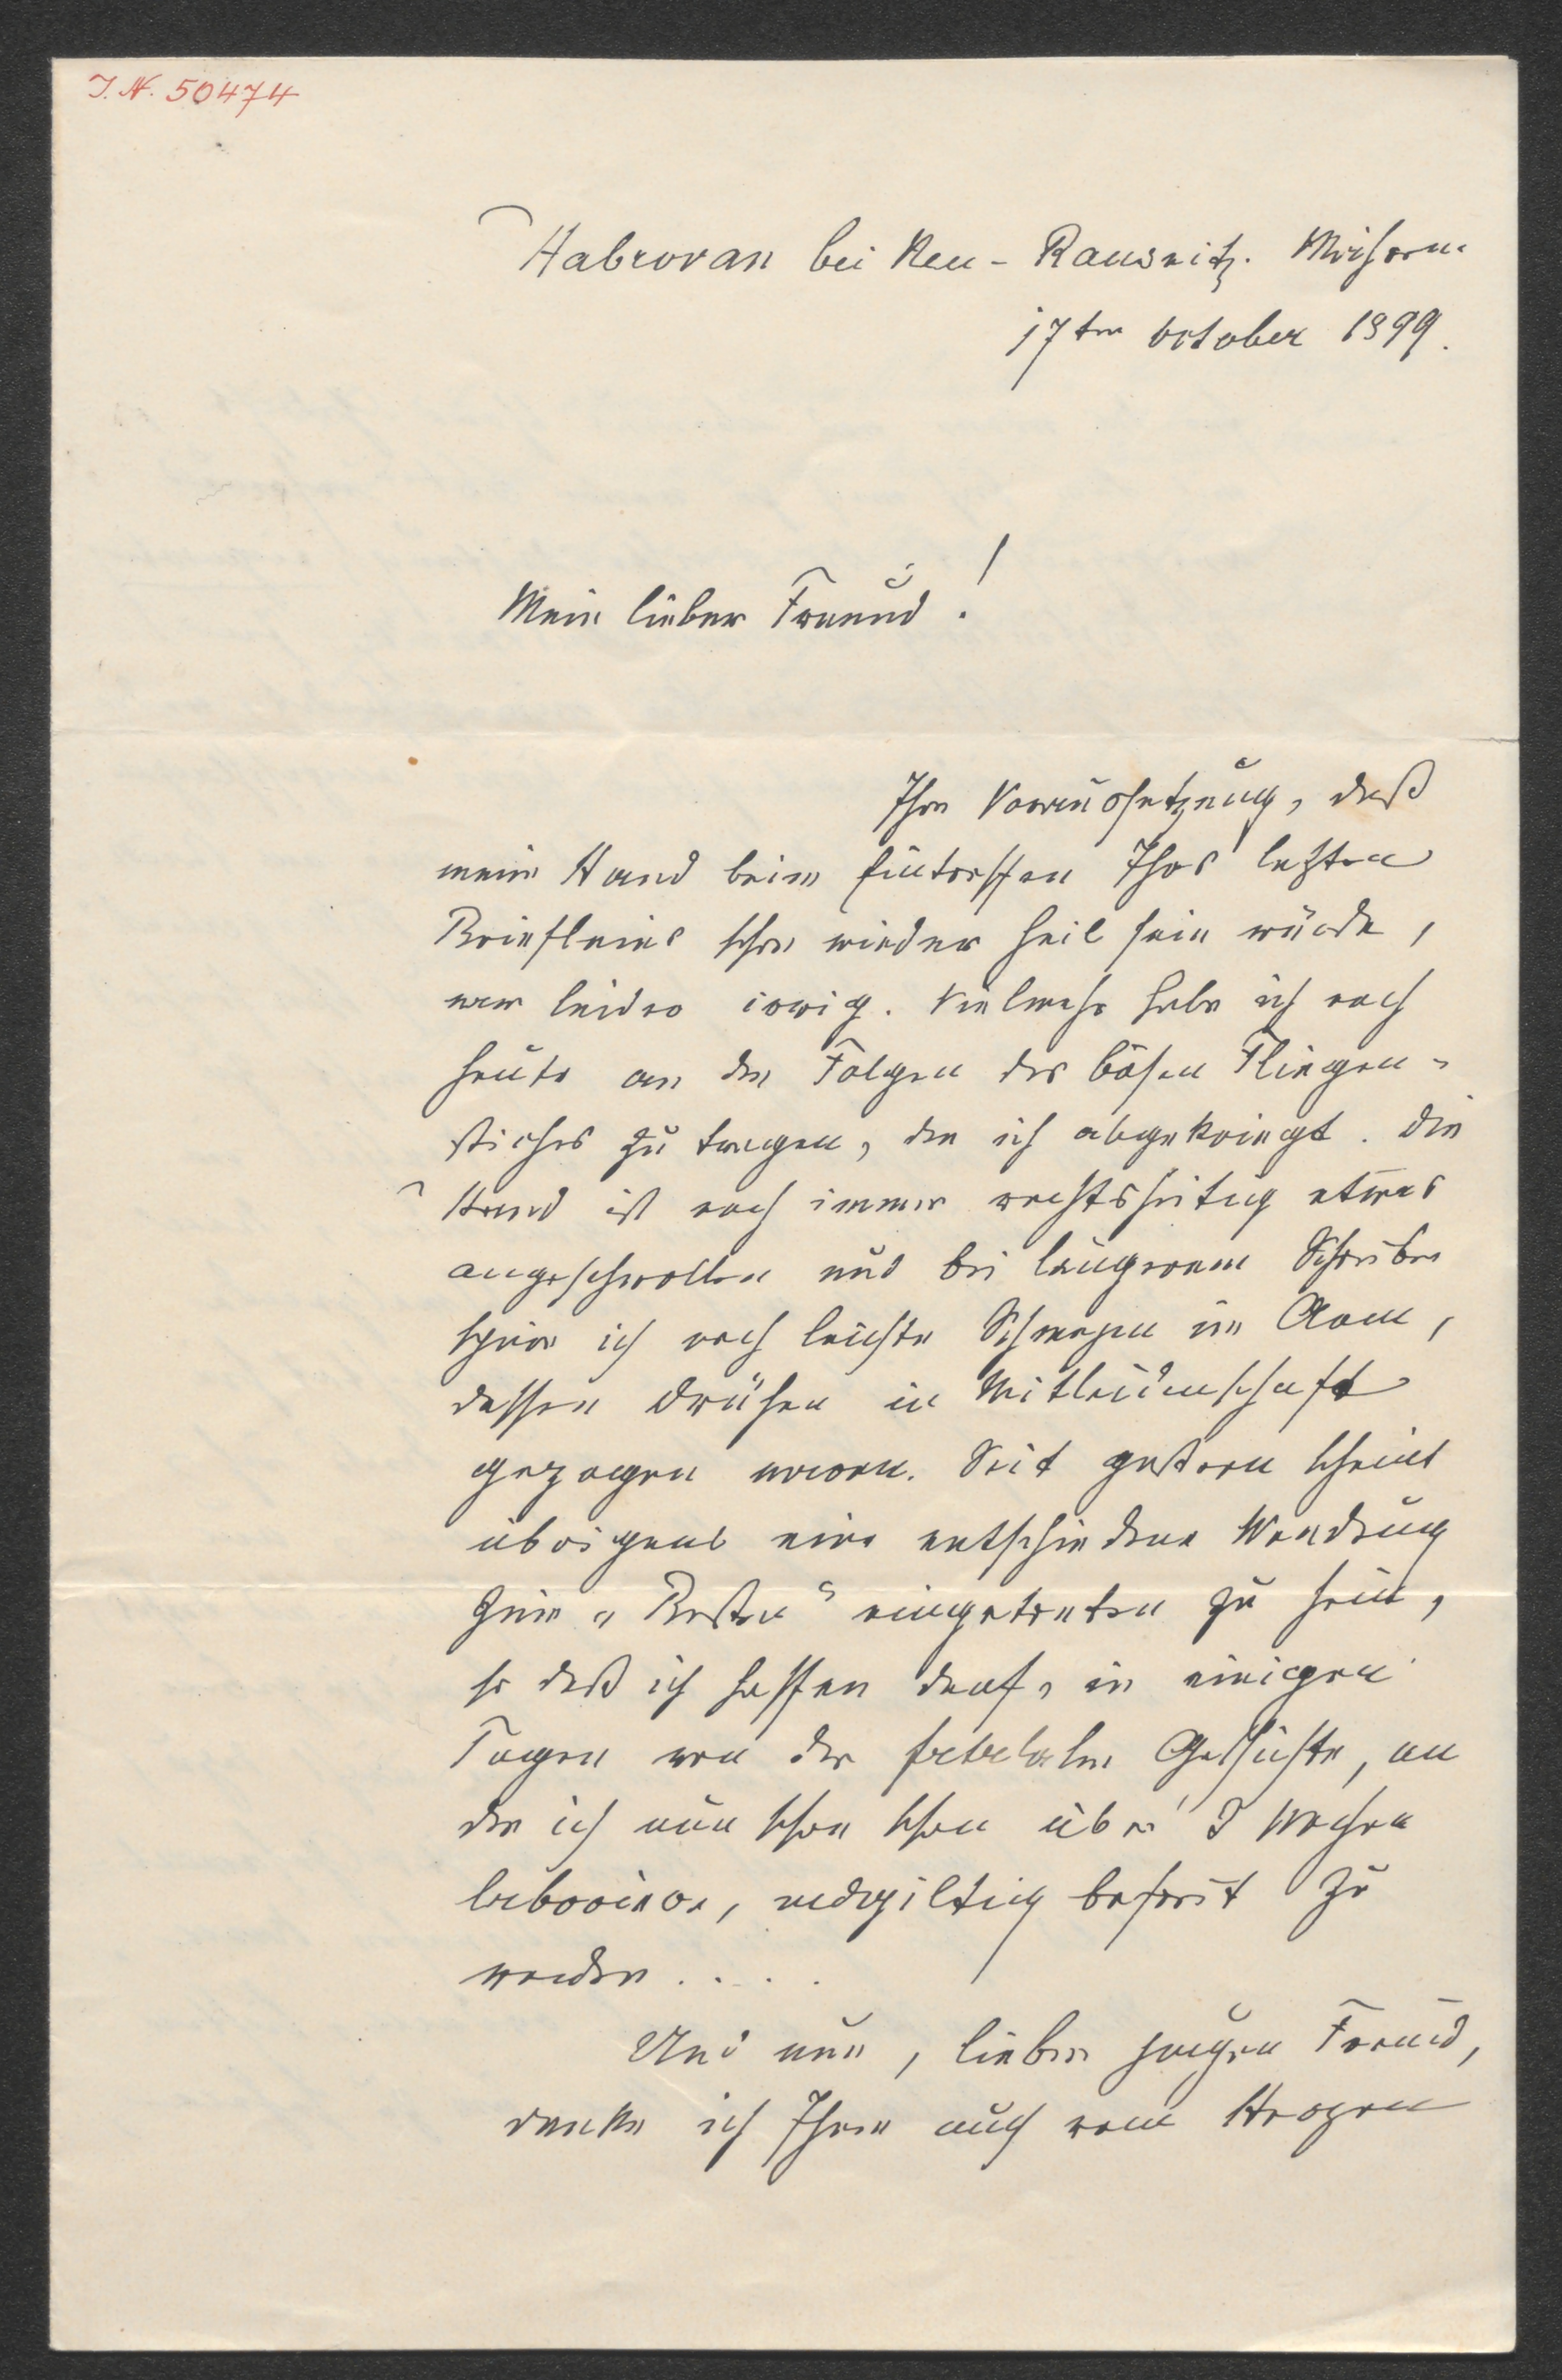 J. N. 50474
Habrovan bei Neu-Rausnitz. Mähren.
17ten October 1899.
Mein lieber Freund!
Ihre Voraussetzung, daß
meine Hand beim Eintreffen Ihres letzten
Briefleins schon wieder heil sein würde,
war leider irrig. Vielmehr habe ich noch
heute an den Folgen des bösen Fliegen-
stiches zu tragen, den ich abgekriegt. Die
Hand ist noch immer rechtsseitig etwas
angeschwollen und bei längerem Schreiben
spüre ich noch leichte Schmerzen im Arm,
dessen Drüsen in Mitleidenschaft
gezogen waren. Seit gestern scheint
übrigens eine entschiedene Wendung
zum „Besten“ eingetreten zu sein,
so daß ich hoffen darf, in einigen
Tagen von der Geschichte, an
der ich nun schon schon über 3 Wochen
laborire, endgiltig befreit zu
werden....
Und nun, lieber junger Freund,
danke ich Ihnen auch vom Herzen